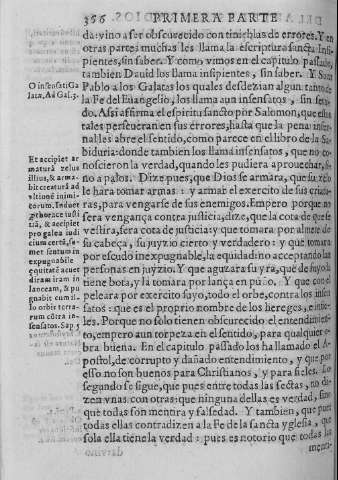 366 PRIMERA PARTE
da: vino a ser obscurecido con tinieblas de errores. Y en
otras partes muchas les llama la escriptura sancta Insi-
pientes, sin saber. Y como vimos en el capitulo passado,
tambien Dauid los llama insipientes, sin saber. Y Sant
Pablo a los Galatas los quales desdezian algun tanto de
la Fe del Euangelio, los llama aun insensatos, sin senti-
do. Assi affirma el espiritu sancto por Salomon, que estos
tales perseueran en sus errores, hasta que la pena infer-
nal les abre el sentido, como parece en el libro de la Sa-
biduria: donde tambien los llama insensatos, que no co-
noscieron la verdad, quando les pudiera aprouechar, si
no a palos. Dize pues, que Dios se armara, que su zelo
le hara tomar armas: y armar el exercito de sus criatu-
ras, para vengarse de sus enemigos. Empero porque no
sera vengança contra justicia, dize, que la cota de que se
vestira, sera cota de justicia: y que tomara por almete de
su cabeça, su juyzio cierto y verdadero: y que tomara
por escudo inexpugnable, la equidad: no acceptando las
personas en juyzio. Y que aguzara su yra, que de suyo la
tiene bota, y la tomara por lança en puño. Y que con el
peleara por exercito suyo, todo el orbe, contra los insen-
satos: que es el proprio nombre de los hereges, e infie-
les. Porque no solo tienen obscurecido el entendimien-
to, empero aun torpeza en el sentido, para qualquier o-
bra buena. En el capitulo passado los ha llamado el A-
postol, de corrupto y dañado entendimiento, y que por
esso no son buenos para Christianos, y para fieles. Lo
segundo se sigue, que pues entre todas las sectas, no di-
zen vnas con otras: que ninguna dellas es verdad, sino
que todas son mentira y falsedad. Y tambien, que pues
todas ellas contradizen a la Fe de la sancta yglesia, que
sola ella tiene la verdad: pues es notorio que todas las
menti-
O insensati Ga
latæ, Ad Gal. 3.
Et accipiet ar
maturã zelus
illius, & arma-
bit creaturã ad
vltionẽ inimi-
corum. Induet
pro thorace iusti
tiã, & accipiet
pro galea iudi
cium certũ, su-
met scutum in
expugnabile
equitatẽ acuet
diram iram in
lanceam, & pu
gnabit cum il-
lo orbis terra-
rum cõtra in-
sensatos. Sap. 5